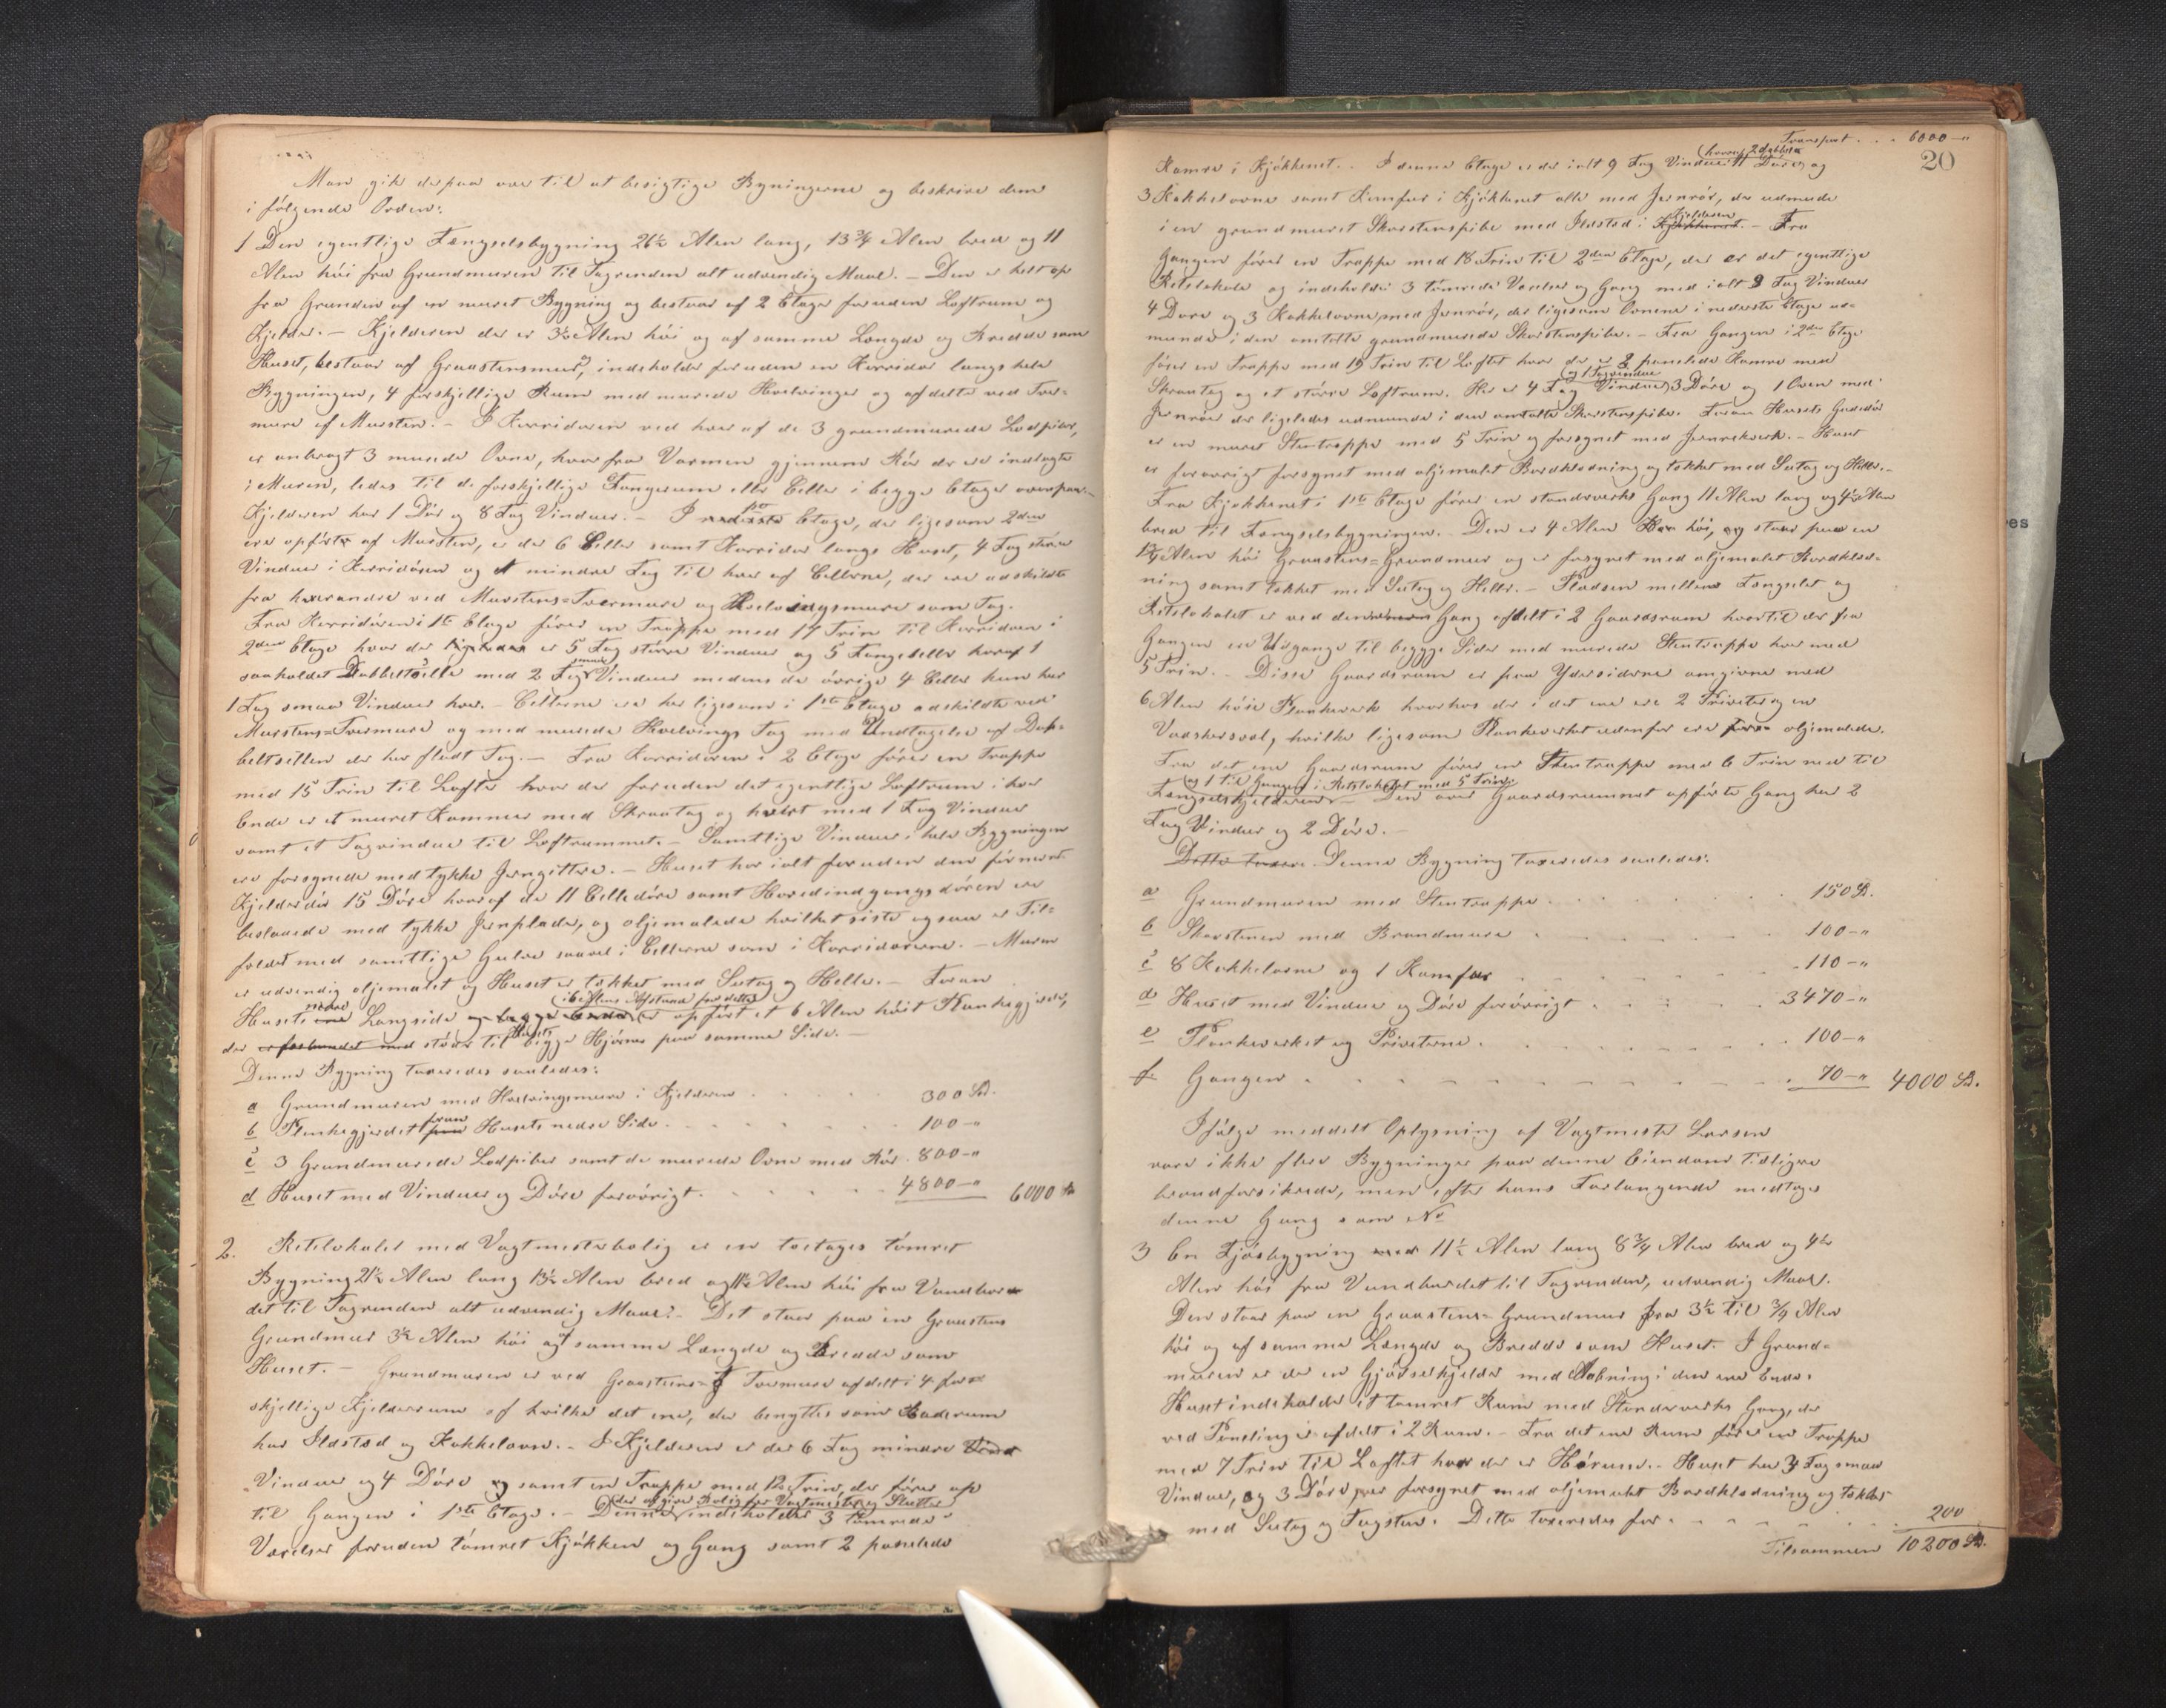 Man gik derpaa over til at besigtige Bygningerne og beskrive dem
i følgende Orden:
1 Den egentlige Fængselsbygning 26½ Alen lang, 13¾ Alen bred og 11
Alen höi fra Grundmuren til Tagrenden alt udvendig Maal. – Den er helt op
fra Grunden af en muret Bygning og bestaar af 2 Etager foruden Loftrum og
Kjelder. – Kjelderen der er 3½ Alen höi og af samme Længde og Bredde som
Huset, bestaar af Graastensmur, indeholder foruden en Korridor langs hele
Bygningen, 4 forskjellige Rum med murede Hvelvinger og afdelte ved Tver-
mure af Mursten. – I Korridoren ved hver af de 3 grundmurede Lodpiber,
er anbragt 3 murede Ovne, hvorfra Varmen gjennem Rör der ere indlagte
i Muren, ledes til de forskjellige Fangerum eller Celler i begge Etager ovenpaa. –
Kjelderen har 1 Dör og 8 Fag Vinduer. – I nederste 1ste Etage, der ligesom 2den
ere opförte af Mursten, er der 6 Celler samt Korridor langs Huset, 4 Fag större
Vinduer i Korridoren og 1 mindre Fag til hver af Cellerne, der ere adskilte
fra hverandre ved Murstens-Tvermure og Hvelvingsmure som Tag.
Fra Korridoren i 1ste Etage förer en Trappe med 17 Trin til Korridoren i
2den Etage hvor der ligeledes er 5 Fag större Vinduer og 5 Fangeceller hvoraf 1
saakaldet Dobbeltcelle med 2 Fag smaa Vinduer medens de övrige 4 Celler kun har
1 Fag smaa Vinduer hver. – Cellerne ere her ligesom i 1ste Etage adskildte ved
Murstens-Tvermure og med murede Hvelvings Tag med Undtagelse af Dob-
beltcellen der har fladt Tag. – Fra Korridoren i 2 Etage förer en Trappe
med 15 Trin til Loftet hvor der foruden det egentlige Loftrum i hver
Ende er et muret Kammer med Skraatag og hvert med 1 Fag Vinduer
samt et Tagvindue til Loftrummet. – Samtlige Vinduer i hele Bygningen
ere forsynede med tykke Jerngittere. – Huset har ialt foruden den förnevnte
Kjelderdör 15 Döre hvoraf de 11 Celledöre samt Hovedindgangsdören ere
beslaaede med tykke Jernplader, og oljemalede hvilket siste ogsaa er Til-
fældet med samtlige Gulve saavel i Cellerne som i Korridorerne. – Muren
er udvendig oljemalet og Huset er tækket med Sutag og Heller. – Foran
Husets nedre Langside og begge Ender (i 6 Alens Afstand fra dette) er opfört et 6 Alen höit Plankegjerde,
der er forbundet med stöder til Husets begge Hjörner paa samme Side. –
Denne Bygning taxeredes saaledes:
a Grundmuren med Hvelvingsmure i Kjelderen . . . 300 Sp.
b Plankegjerdet foran paa Husets nedre Side . . . 100 – "
c 3 Grundmurede Lodpiber samt de murede Ovne med Rör . 800 – "
d Huset med Vinduer og Döre forövrigt . . . 4800 – " 6000 Sp
2. Retslokalet med Vagtmesterbolig er en toetages tömret
Bygning 21½ Alen lang 13½ Alen bred og Alen höi fra Vandbor-
det til Tagrenden alt udvendig Maal. – Det staar paa en Graastens
Grundmur 3½ Alen höi og af samme Længde og Bredde som
Huset. – Grundmuren er ved Graastens- Tvermure afdelt i 4 for-
skjellige Kjelderrum af hvilke det ene, der benyttes som Baderum
har Ildsted og Kakkelovn. – I Kjelderen er der 6 Fag mindre Vind
Vinduer og 4 Döre og samt en Trappe med 12 Trin, der förer op
til Gangen i 1ste Etage. – Denne (der afgiver Bolig for Vagtmester og Slutter) indeholder 3 tömrede
Værelser foruden tömret Kjökken og Gang samt 2 panelede
Transport . . . 6000 – "
20
Kamre i Kjökkenet. . I denne Etage er der ialt 9 Fag Vinduer 11 Döre (hvoraf 2 dobbelte og
3 Kakkelovne samt Komfur i Kjökkenet alle med Jernrör, der udmunde
i en grundmuret Skorstenspibe med Ildsted i Kjelderen Kjökkenet. – Fra
Gangen förer en Trappe med 18 Trin til 2den Etage, der er det egentlige
Retslokale og indeholder 3 tömrede Værelser og Gang med ialt 9 Fag Vinduer
4 Döre og 3 Kakkelovne med Jernrör, der ligesom Ovnene i nederste Etage ud-
munde i den omtalte grundmurede Skorstenspibe. – Fra Gangen i 2den Etage
förer en Trappe med 19 Trin til Loftet hvor der er 2 panelede Kamre med
Skraatag og et större Loftrum. Her er 4 Fag Vinduer (og 1 Tagvindue) 3 Döre og 1 Oven med
Jernrör der ligeledes udmunde i den omtalte Skorstenspibe. Foran Husets Gadedör
er en muret Stentrappe med 5 Trin og forsynet med Jernrekverk. – Huset
er forövrigt forsynet med oljemalet Bordklædning og tækket med Sutag og Heller. –
Fra Kjökkenet i 1ste Etage förer en standverks Gang 11 Alen lang og 4½ Alen
bred til Fængselsbygningen. Den er 4 Alen höi, og staar paa en
1¼ Alen höi Graastens-Grundmur og er forsynet med oljemalet Bordklæd-
ning samt tækket med Sutag og Heller. – Pladsen mellem Fængslet og
Retslokalet er ved denne Gang afdelt i 2 Gaardsrum hvortil der fra
Gangen er Udgange til begge Sider med murede Stentrappe hver med
5 Trin. – Disse Gaardsrum er paa Ydersiderne omgivne med
6 Alen höie Plankeverk hvorhos der i det ene ere 2 Priveter og en
Vadskersval, hvilke ligesom Plankeverket udenfor ere oljemalede.
Fra det ene Gaardsrum förer en Stentrappe med 6 Trin ned til
Fængselskjelderen (og 1 til Gangen i Retslokalet med 5 Trin). – Den over Gaardsrummet opförte Gang har 2
Fag Vinduer og 2 Döre. –
Dette taxere Denne Bygning taxeredes saaledes:
a Grundmuren med Stentrappe . . . 150 Sp.
b Skorstenen med Brandmure . . . 100 – "
c 8 Kakkelovne og 1 Komfur . . . 110 – "
d Huset med Vinduer og Döre forövrigt . . . 3470 – "
e Plankeverket og Priveterne . . . 100 – "
f Gangen . . . 70 – " 4000 Sp.
Ifölge meddelt Oplysning af Vagtmester Larsen
vare ikke flere Bygninger paa denne Eiendom tidligere
brandforsikrede, men efter hans Forlangende medtoges
denne Gang som No
3 En Fjösbygning 11½ Alen lang 8¾ Alen bred og 4½
Alen höi fra Vandbordet til Tagrenden, udvendig Maal.
Den staar paa en Graastens-Grundmur fra 3½ til ¾ Alen
höi og af samme Længde og Bredde som Huset. I Grund-
muren er der en Gjödselkjelder med Aabning i den ene Ende.
Huset indeholder et tömret Rum med Standverks Gang, der
ved Paneling er afdelt i 2 Rum. – Fra det ene Rum förer en Trappe
med 7 Trin til Loftet hvor der er Hörum. – Huset har 3 Fag smaa
Vinduer, og 3 Döre, er forsynet med oljemalet Bordklædning og tækket
med Sutag og Tagsten. Dette taxeredes for . . . 200
Tilsammen 10200 Sp.